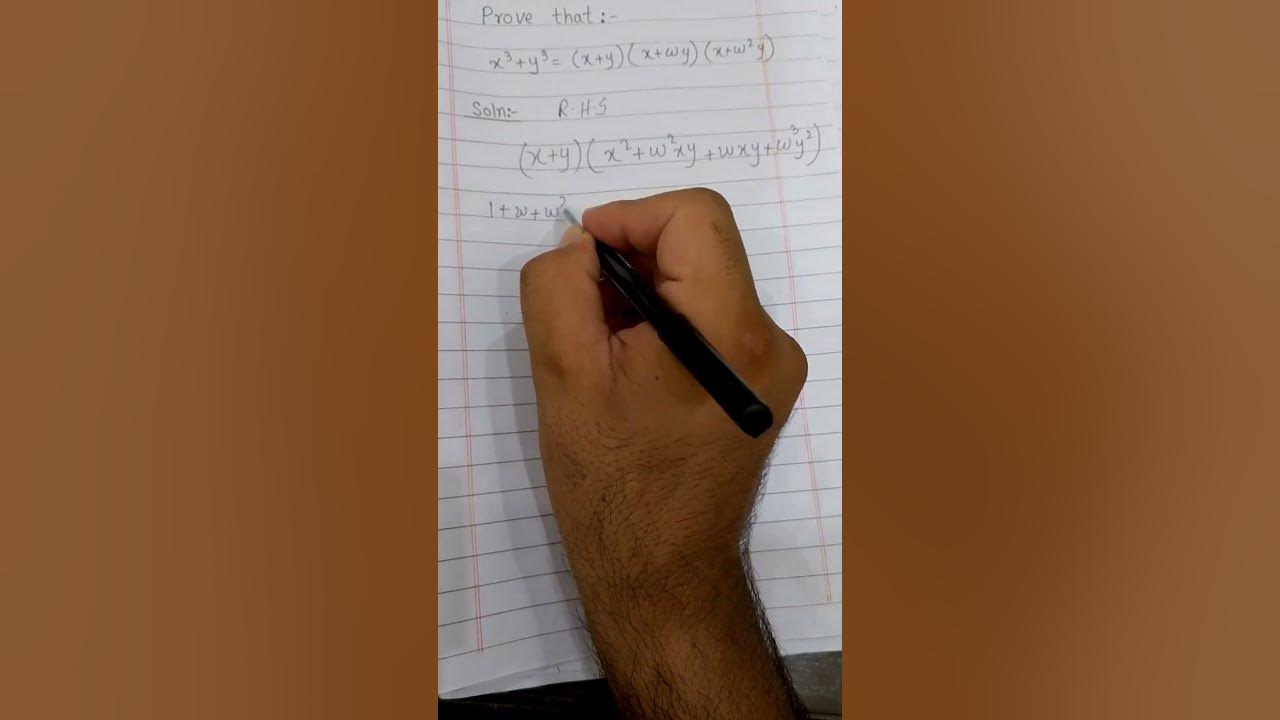 Prove that:-
x³+y³= (x+y)(x+ωy)(x+ω²y)
Soln:- R.H.S
(x+y)(x²+ω²xy+ωxy+ω³y²)
1+ω+ω²